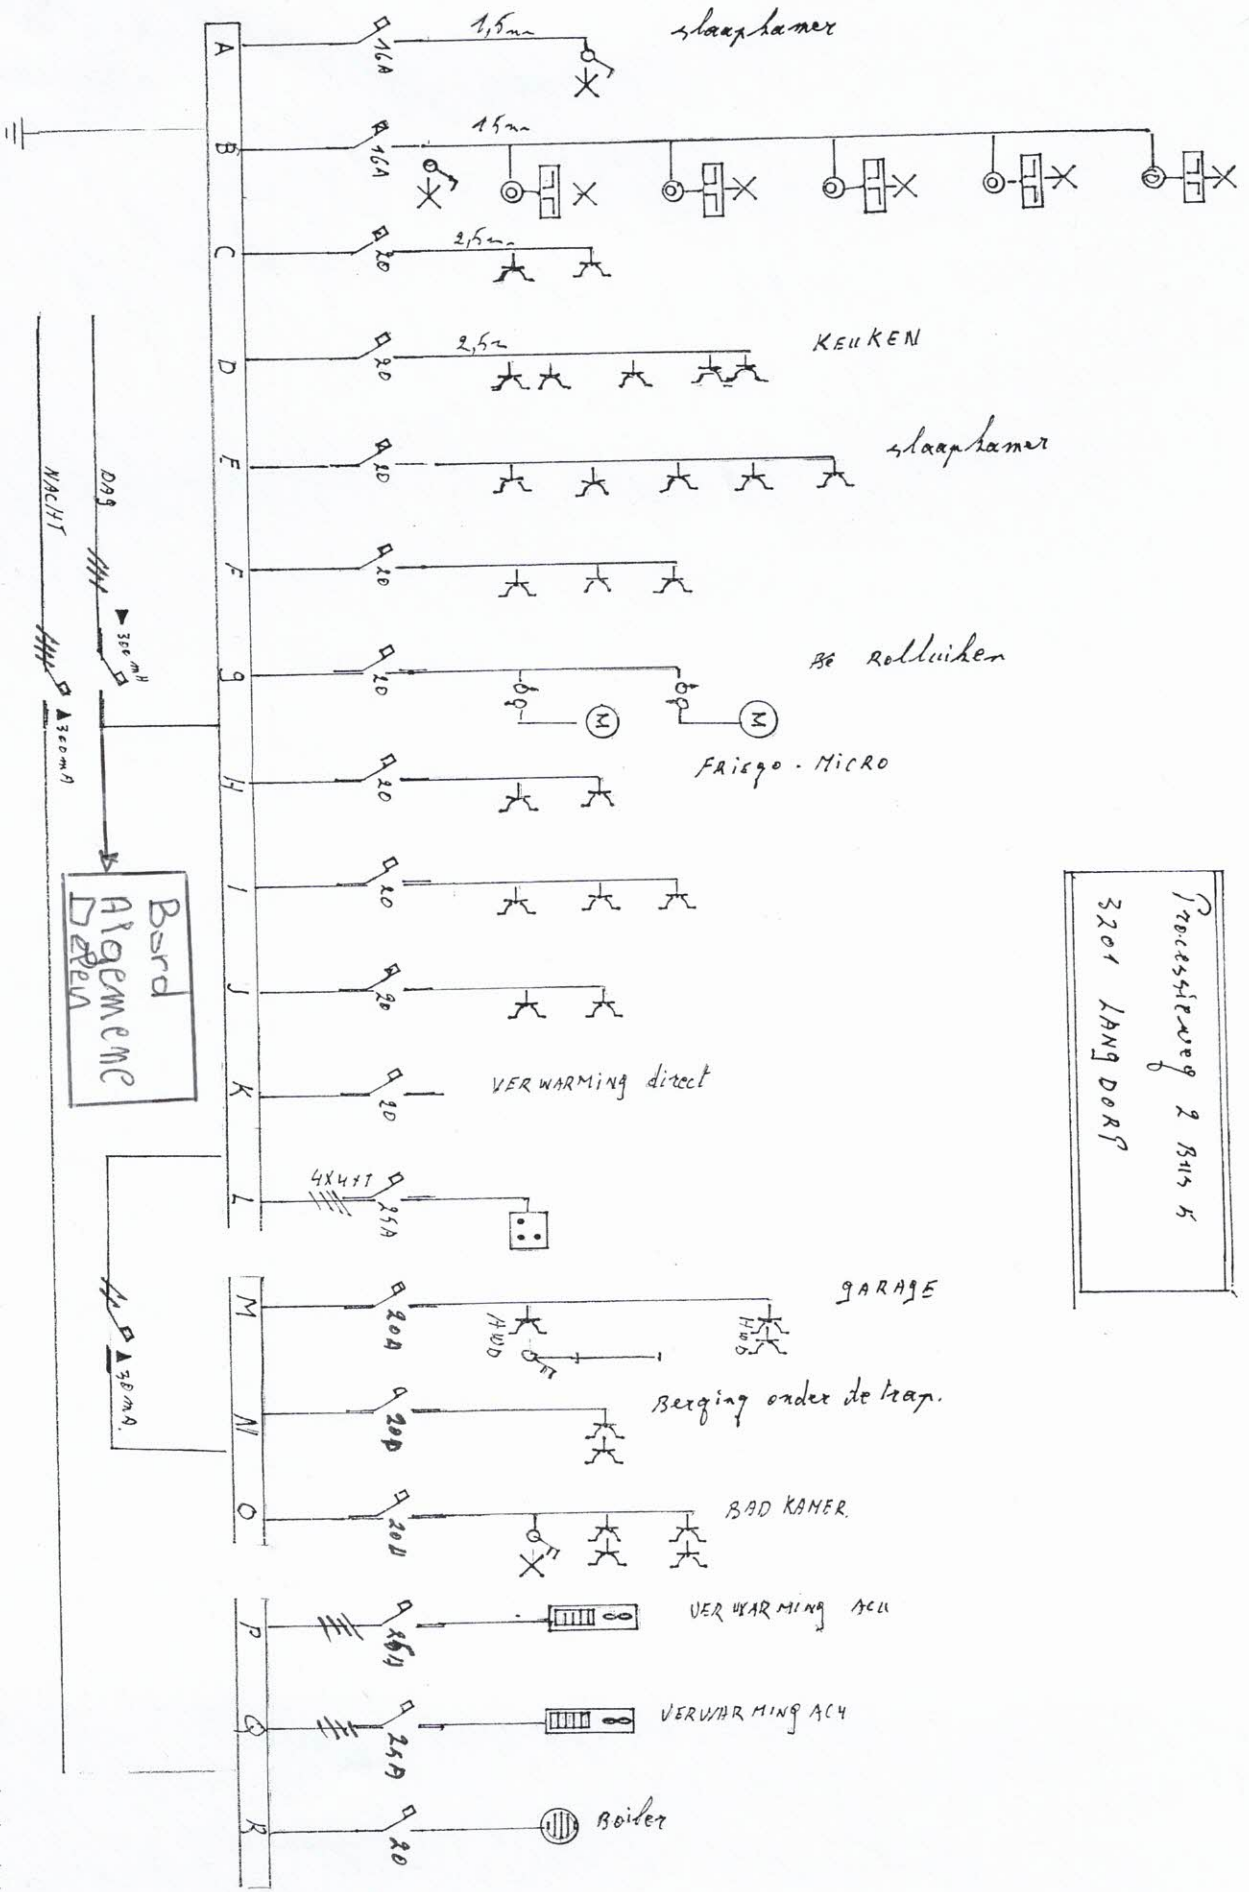 A
16A
1,5m
slaapkamer
B
16A
15m
C
20
2,5m
D
20
2,5m
KEUKEN
E
20
slaapkamer
F
20
g
20
Rolluiken
H
20
FRisgo - MicRo
I
20
J
20
K
20
VERWARMING direct
L
4X4+T
25A
M
20A
HWD
HWD
gARAgE
N
20A
Berging onder de trap.
O
20A
BAD KAMER.
P
25A
VERWARMING ACU
Q
25A
VERWARMING ACU
R
20
Boiler
DAg
300mA
NACHT
300mA
30mA.
Bord
Algemene
Delen
Processieweg 2 Bus 5
3201 LANgDORP